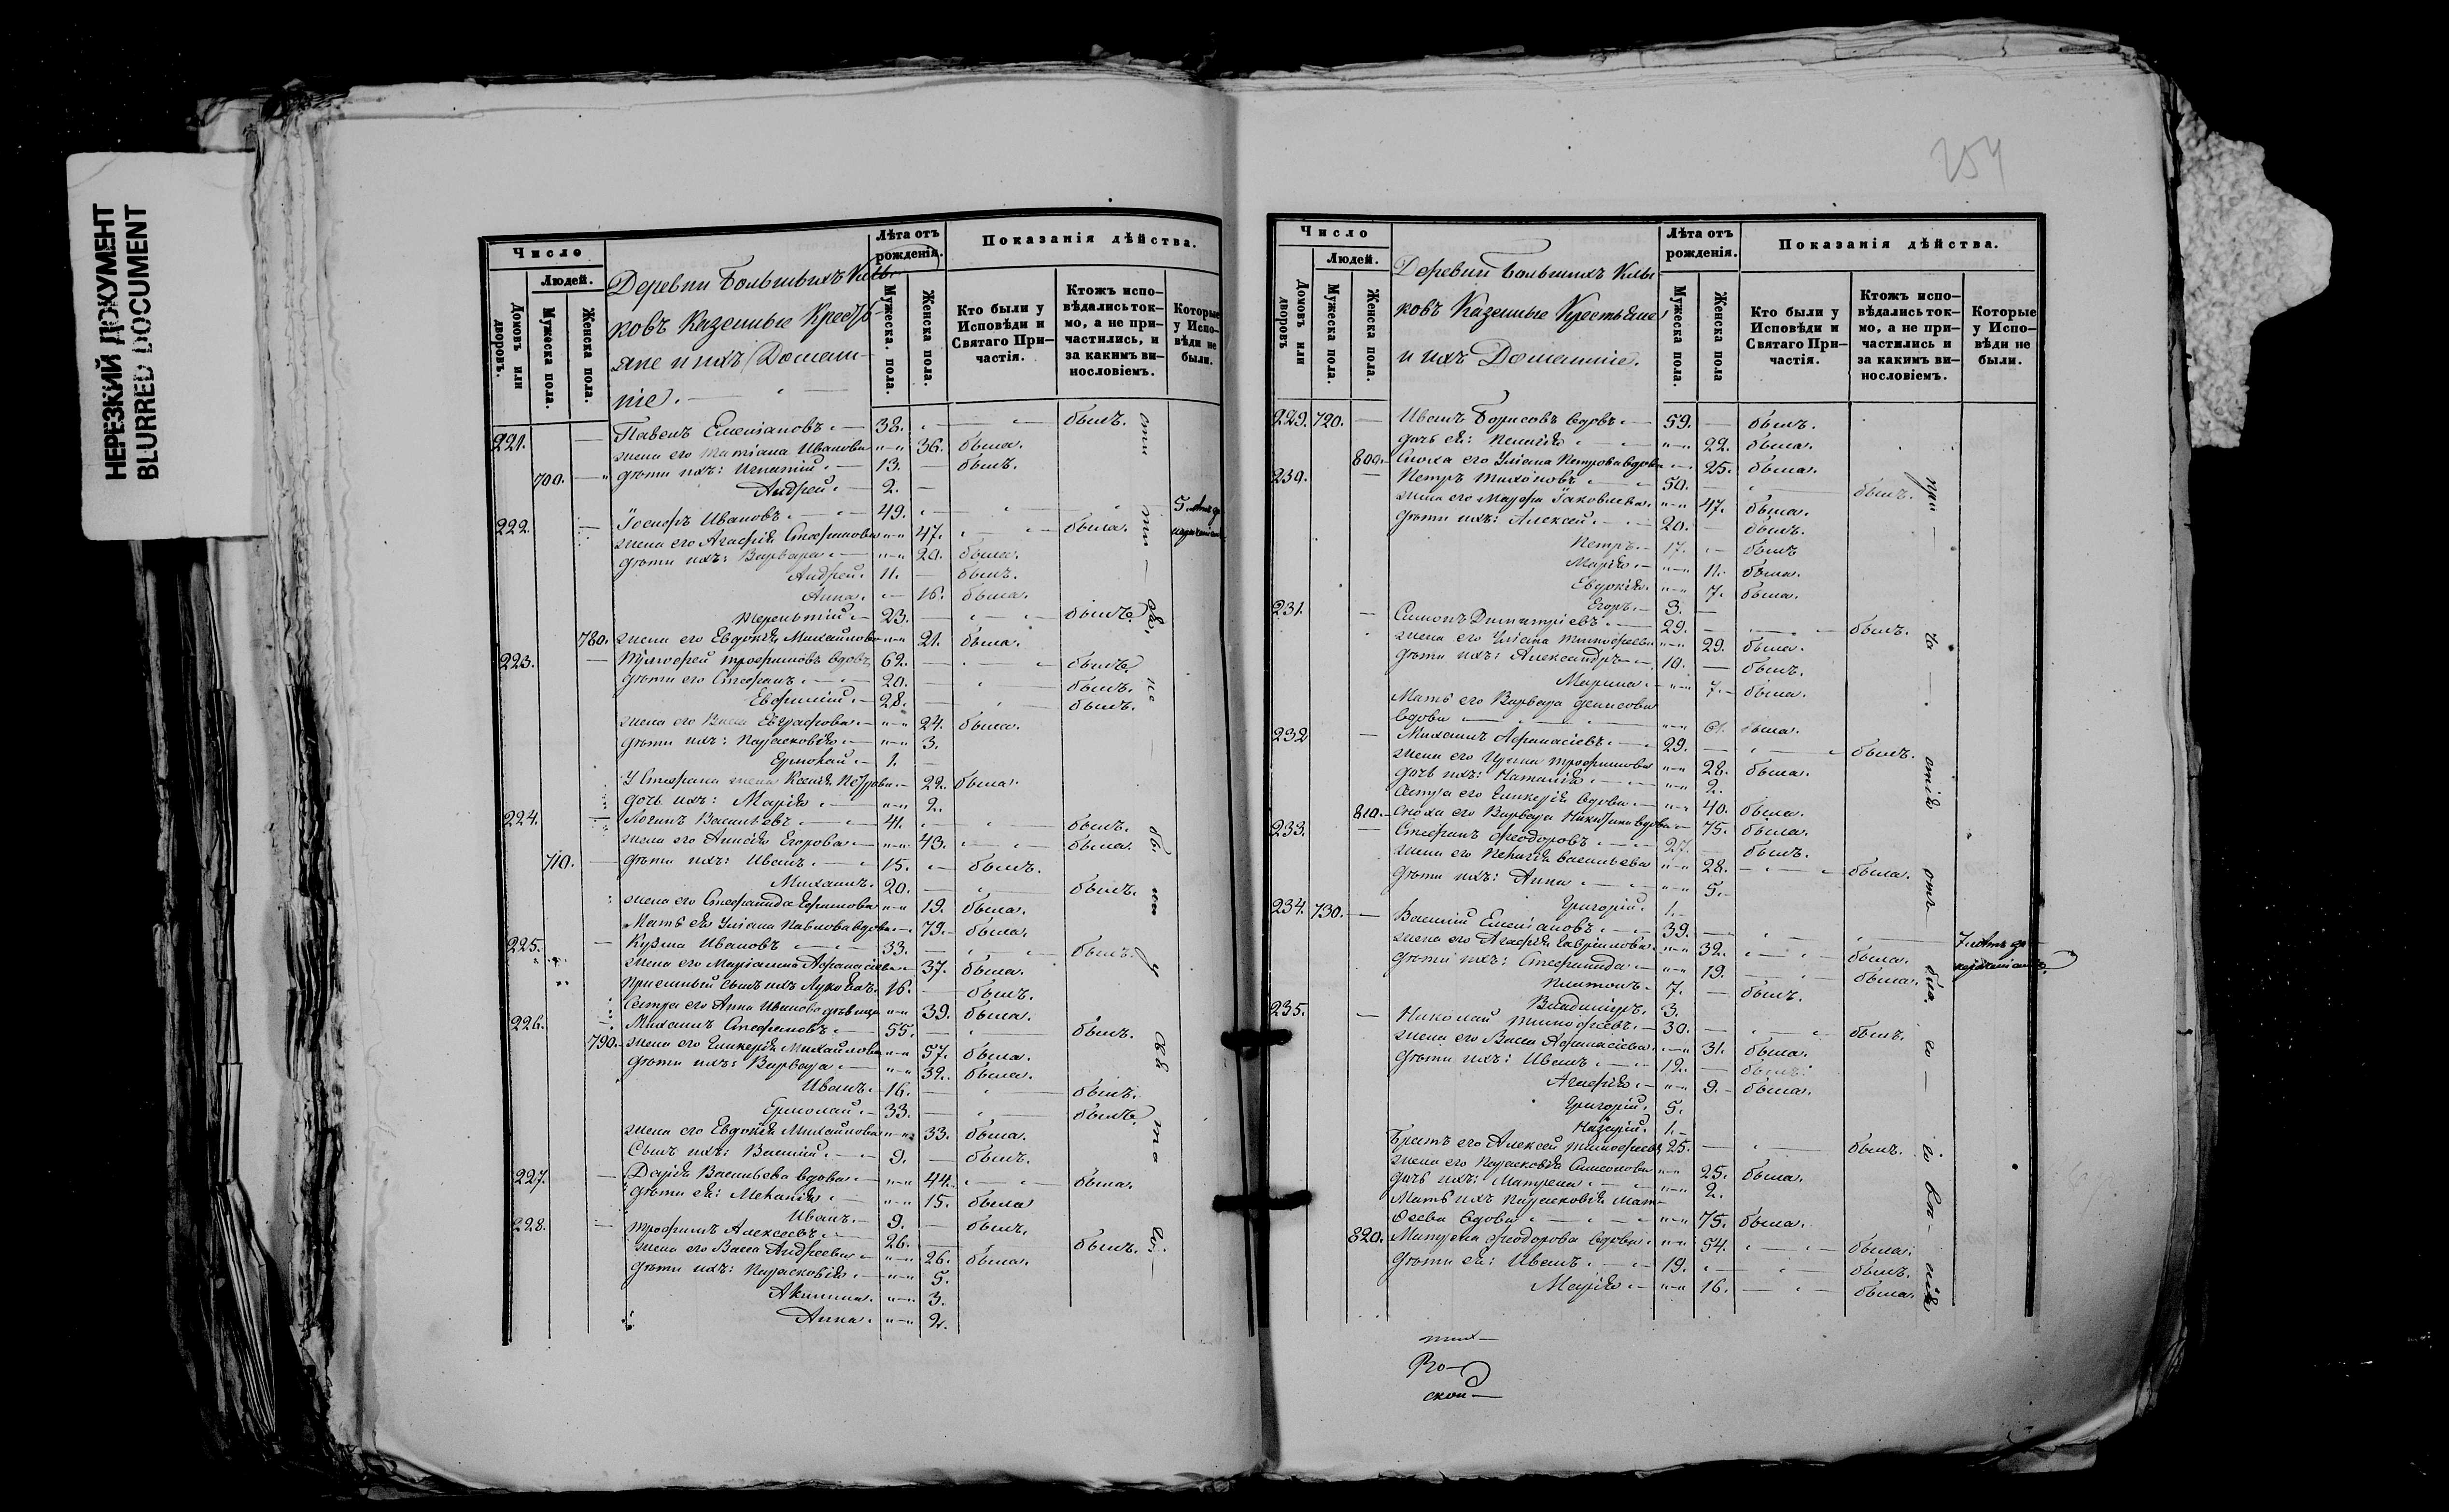 НЕРЕЗКИЙ ДОКУМЕНТ
BLURRED DOCUMENT
Число
Людей.
Домовъ или дворовъ.
Мужеска пола.
Женска пола.
Деревни Большихъ
ковъ Казенные Кресть-
яне и ихъ Домаш-
ніе.
Лѣта отъ рожденія.
Мужеска пола.
Женска пола.
Показанія дѣйства.
Кто были у Исповѣди и Святаго При-частія.
Ктожъ испо-вѣдались ток-мо, а не при-частились, и за какимъ ви-нословіемъ.
Которые у Испо-вѣди не были.
221. Павелъ Емеліановъ. 38. былъ.
жена его Татіана Иванова 36. была.
700. дѣти ихъ: Игнатій. 13. былъ.
Андрей. 2.
222. Іосифъ Ивановъ. 49. 5
жена его Агафія Стефанова 47. была.
дѣти ихъ: Варвара 20. была.
Андрей. 11. былъ.
Анна. 16. была.
Терентій 23. былъ
780. жена его Евдокія Михайлова 21. была.
223. Тимофей Трофимовъ вдовъ 62. былъ
дѣти его Стефанъ 20. былъ.
Евфимій 28. былъ.
жена его Васса Евграфова 24. была.
дѣти ихъ: Парасковія 3.
Ермолай 1.
У Стефана жена Ксенія Петрова 22. была.
дочь ихъ: Марія 2.
224. Логинъ Васильевъ 41. былъ.
жена его Анисія Егорова 43. была.
710. дѣти ихъ: Иванъ 15. былъ.
Михаилъ. 20. былъ.
жена его Стефанида Ефимова 19. была.
Мать ея Уліана Павлова вдова 79. была.
225. Кузма Ивановъ 33. былъ
жена его Маріамна Афанасіева 37. была.
Пріемный сынъ ихъ 16. былъ.
Сестра его Анна Иванова дѣвица 39. была.
226. Михаилъ Стефановъ 55. былъ.
790. жена его Гликерія Михайлова 57. была.
дѣти ихъ: Варвара 32. была.
Иванъ. 16. былъ.
Ермолай. 33. былъ
жена его Евдокія Михайлова 33. была.
Сынъ ихъ: Василій. 9. былъ.
227. Дарія Васильева вдова 44. была.
дѣти ея: Меланія 15. была
Иванъ. 9. былъ.
228. Трофимъ Алексѣевъ 26. былъ.
жена его Васса Андреева 26. была.
дѣти ихъ: Параскевія 5.
Акилина. 3.
Анна. 2.
254
Число
Людей.
Домовъ или дворовъ
Мужеска пола.
Женска пола.
Деревни Большихъ
ковъ Казенные Крестьяне
и ихъ Домашніе.
Лѣта отъ рожденія.
Мужеска пола.
Женска пола
Показанія дѣйства.
Кто были у Исповѣди и Святаго При-частія.
Ктожъ испо-вѣдались ток-мо, а не при-частились и за какимъ ви-нословіемъ.
Которые у Испо-вѣди не были.
229. 720. Иванъ Борисовъ вдовъ 59. былъ.
дочь его: 22. была.
800. Сноха его Уліана Петрова вдова 25. была.
230. Петръ Тихоновъ 50. былъ.
жена его Марфа Іаковлева. 47. была.
дѣти ихъ: Алексѣй. 20. былъ.
Петръ. 17. былъ
Марія 11. была.
Евдокія. 7. была.
Егоръ. 3.
231. Симонъ Димитріевъ. 29. былъ.
жена его Уліана Тимофеева 29. была.
дѣти ихъ: Александръ 10. былъ.
Марина. 7. была.
Мать его Варвара Денисова
вдова 61. была.
232 Михаилъ Афанасіевъ. 29. былъ.
жена его Ирина Трофимова 28. была.
дочь ихъ: Наталія 2.
Сестра его Гликерія вдова 40. была.
810. Сноха его Варвара Никитина вдова 75. была.
233. Стефанъ Феодоровъ 27. былъ.
жена его Пелагія Васильева 28. была.
дѣти ихъ: Анна 5.
Григорій. 1.
234. 730. Василій Емеліановъ 39. 7
жена его Агафія Гавріилова. 32. была.
дѣти ихъ: Стефанида 19. была.
Платонъ 7. былъ.
Владиміръ. 3.
235. Николай Тимофѣевъ. 30. былъ.
жена его Васса Афанасіева. 31. была.
дѣти ихъ: Иванъ 12. былъ.
Агафія 9. была.
Григорій. 5.
Назарій. 1.
Братъ его Алексѣй Тимофеевъ 25. былъ.
жена его Параскевія Симонова 25. была.
дочь ихъ: Матрена 2.
Мать ихъ Параскевія Мат-
ѳеева вдова 75. была.
820. Матрена Феодорова вдова. 54. была.
дѣти ея: Иванъ 19. былъ.
Марія 16. была.